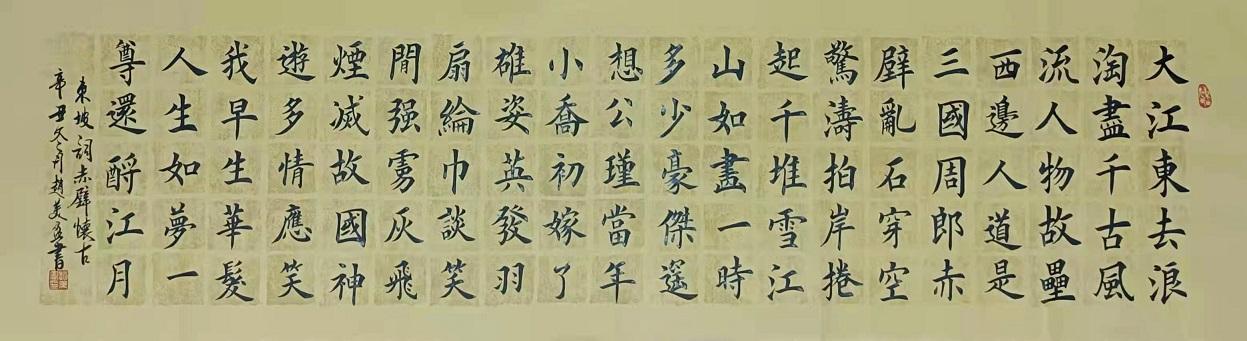 大江東去浪
淘盡千古風
流人物故壘
西邊人道是
三國周郎赤
壁亂石穿空
驚濤拍岸捲
起千堆雪江
山如畫一時
多少豪傑遥
想公瑾當年
小喬初嫁了
雄姿英發羽
扇綸巾談笑
間强虜灰飛
煙滅故國神
遊多情應笑
我早生華髮
人生如夢一
尊還酹江月
東坡詞赤壁懷古
辛丑冬月趙美書